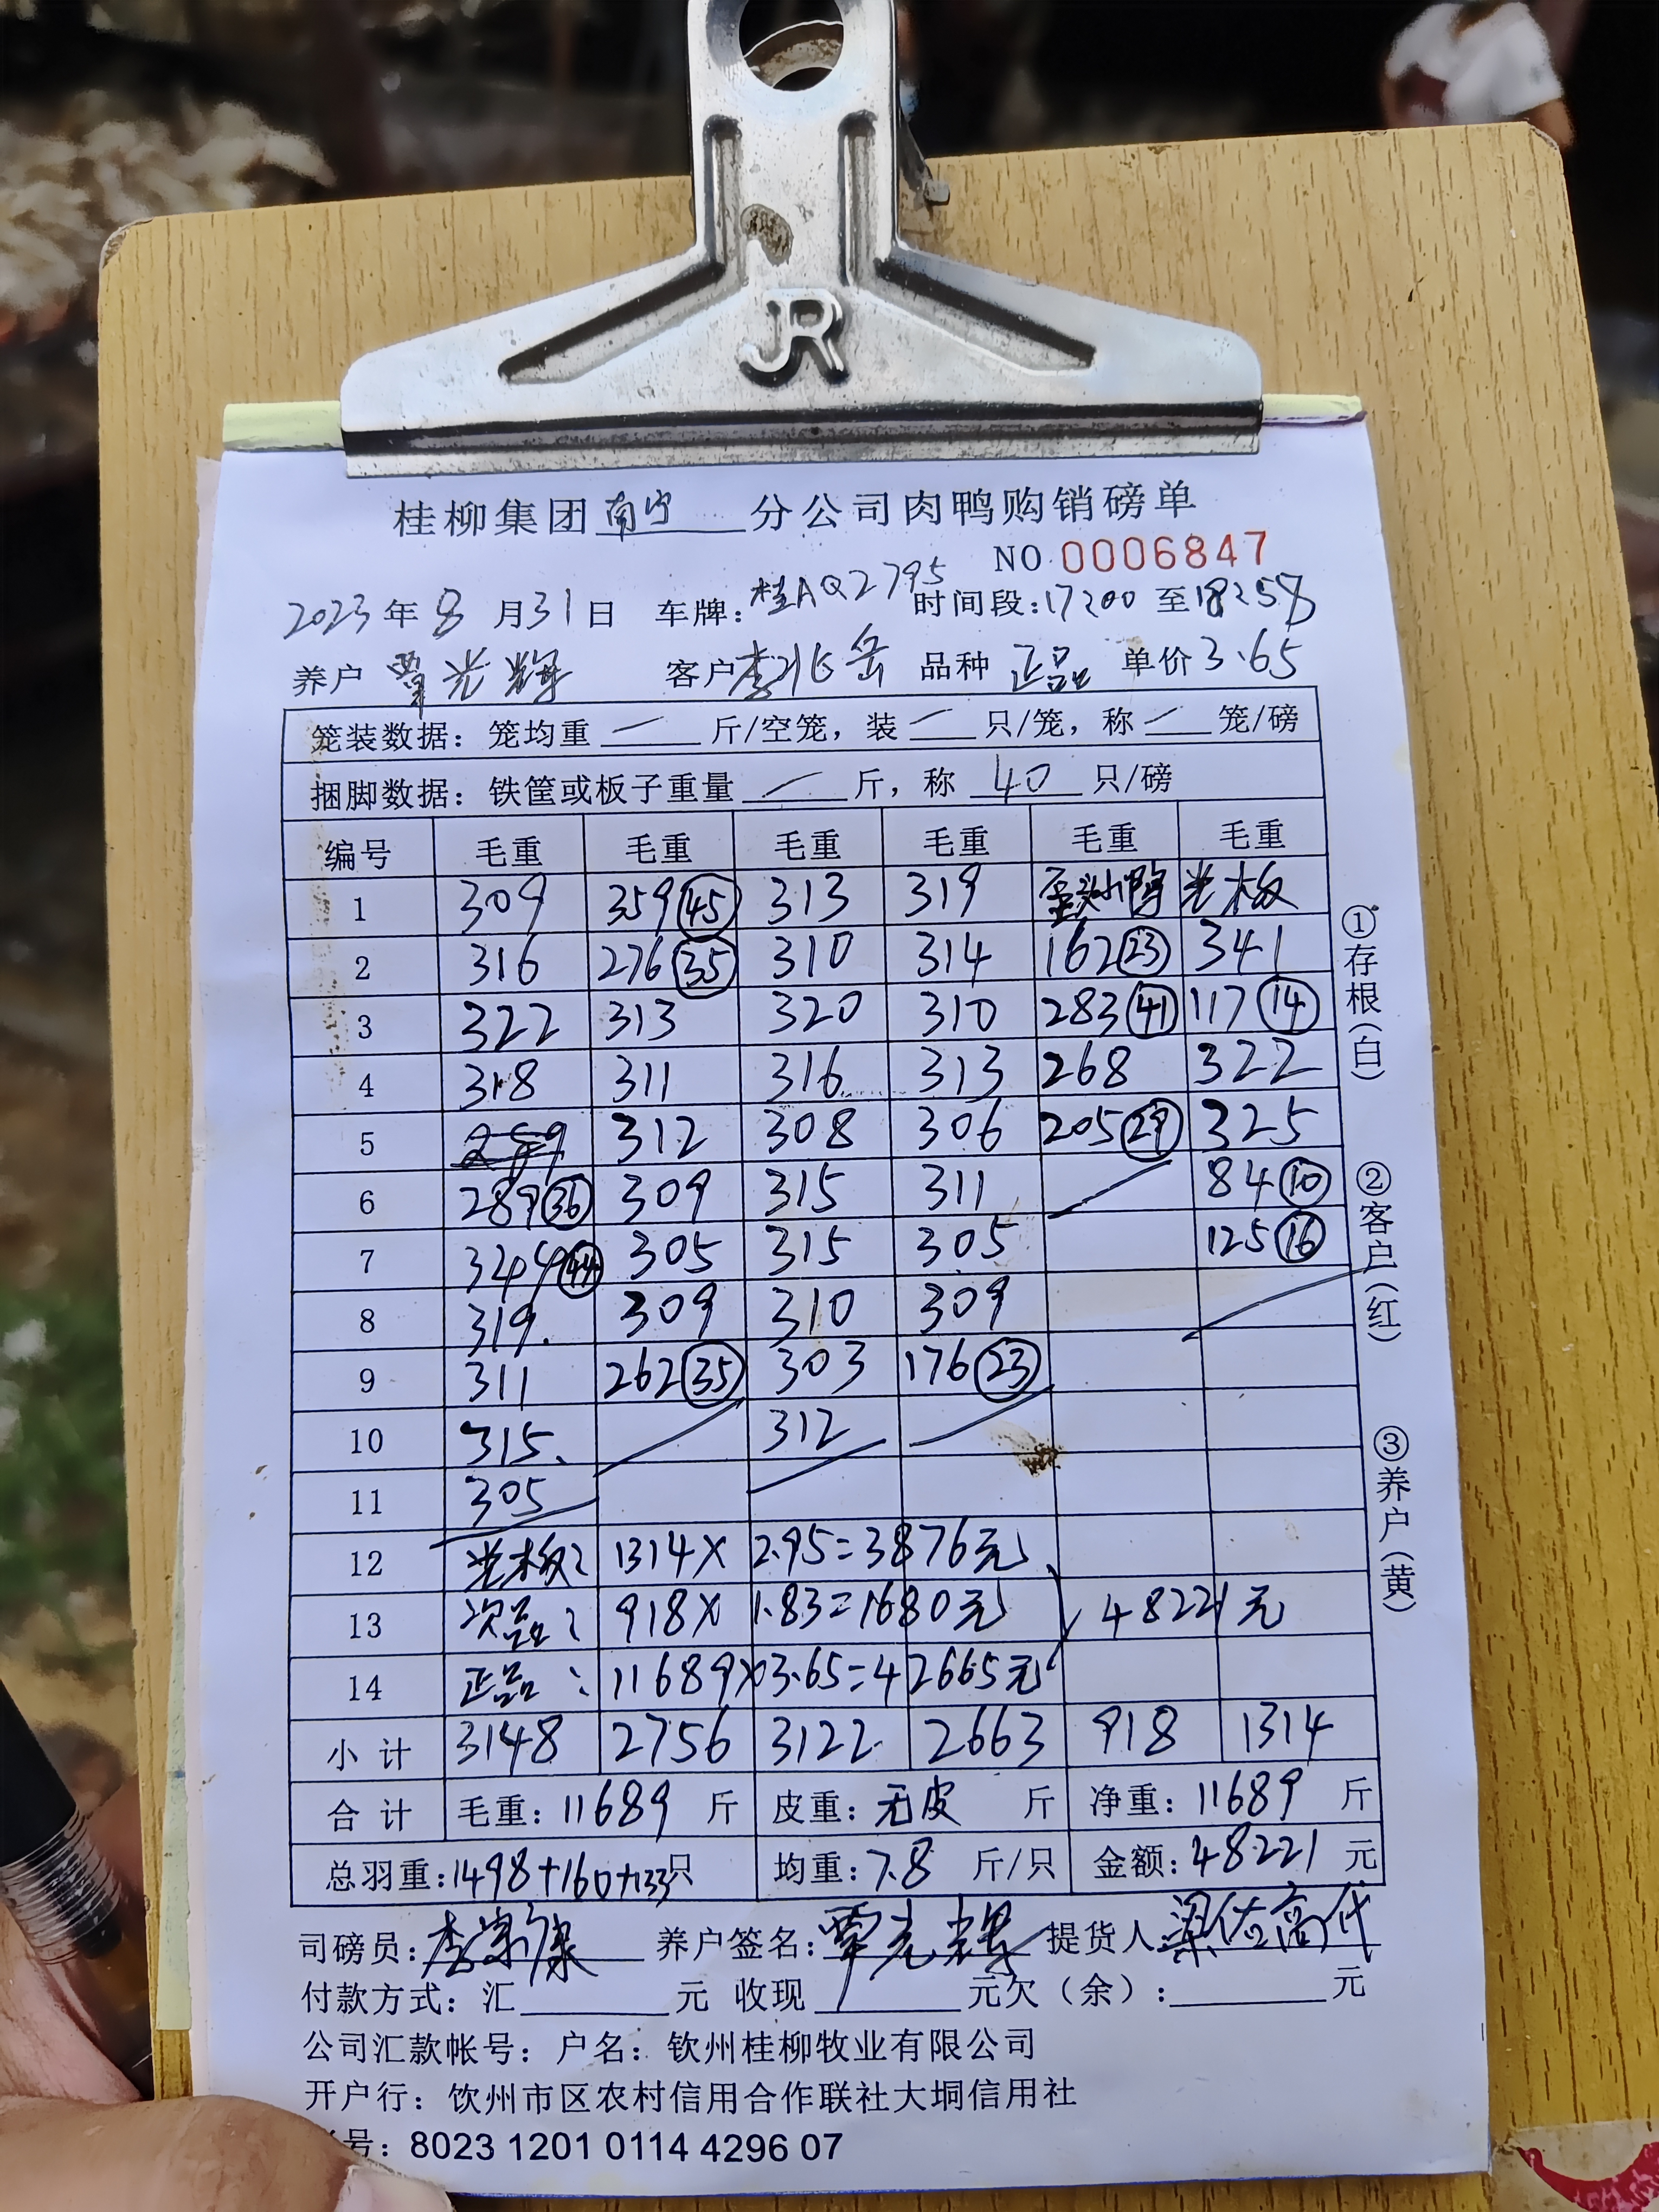 JR
桂柳集团南宁分公司肉鸭购销磅单
NO 0006847
2023年8月31日 车牌:桂AQ2795 时间段:17:00至18:58
养户 覃光辉 客户 李兆岳 品种 正品 单价 3.65
笼装数据: 笼均重 — 斤/空笼, 装 — 只/笼, 称 — 笼/磅
捆脚数据: 铁筐或板子重量 — 斤, 称 40 只/磅
编号 毛重 毛重 毛重 毛重 毛重 毛重
1 309 359(45) 313 319 歪头小鸭 光板
2 316 276(35) 310 314 162(23) 341
3 322 313 320 310 283(41) 117(14)
4 318 311 316 313 268 322
5 312 308 306 205(29) 325
6 289(36) 309 315 311 84(10)
7 344(44) 305 315 305 125(16)
8 319 309 310 309
9 311 262(35) 303 176(23)
10 315 312
11 305
12 光板: 1314×2.95=3876元
13 次品: 918×1.83=1680元 48221元
14 正品: 11689×3.65=42665元
小计 3148 2756 3122 2663 918 1314
合计 毛重: 11689 斤 皮重: 无皮 斤 净重: 11689 斤
总羽重: 1498+160+133只 均重: 7.8 斤/只 金额: 48221 元
司磅员: 李 康 养户签名: 覃光辉 提货人 梁佐高代
付款方式: 汇 元 收现 元欠(余): 元
公司汇款帐号: 户名: 钦州桂柳牧业有限公司
开户行: 饮州市区农村信用合作联社大垌信用社
号: 8023 1201 0114 4296 07
①存根(白)
②客户(红)
③养户(黄)